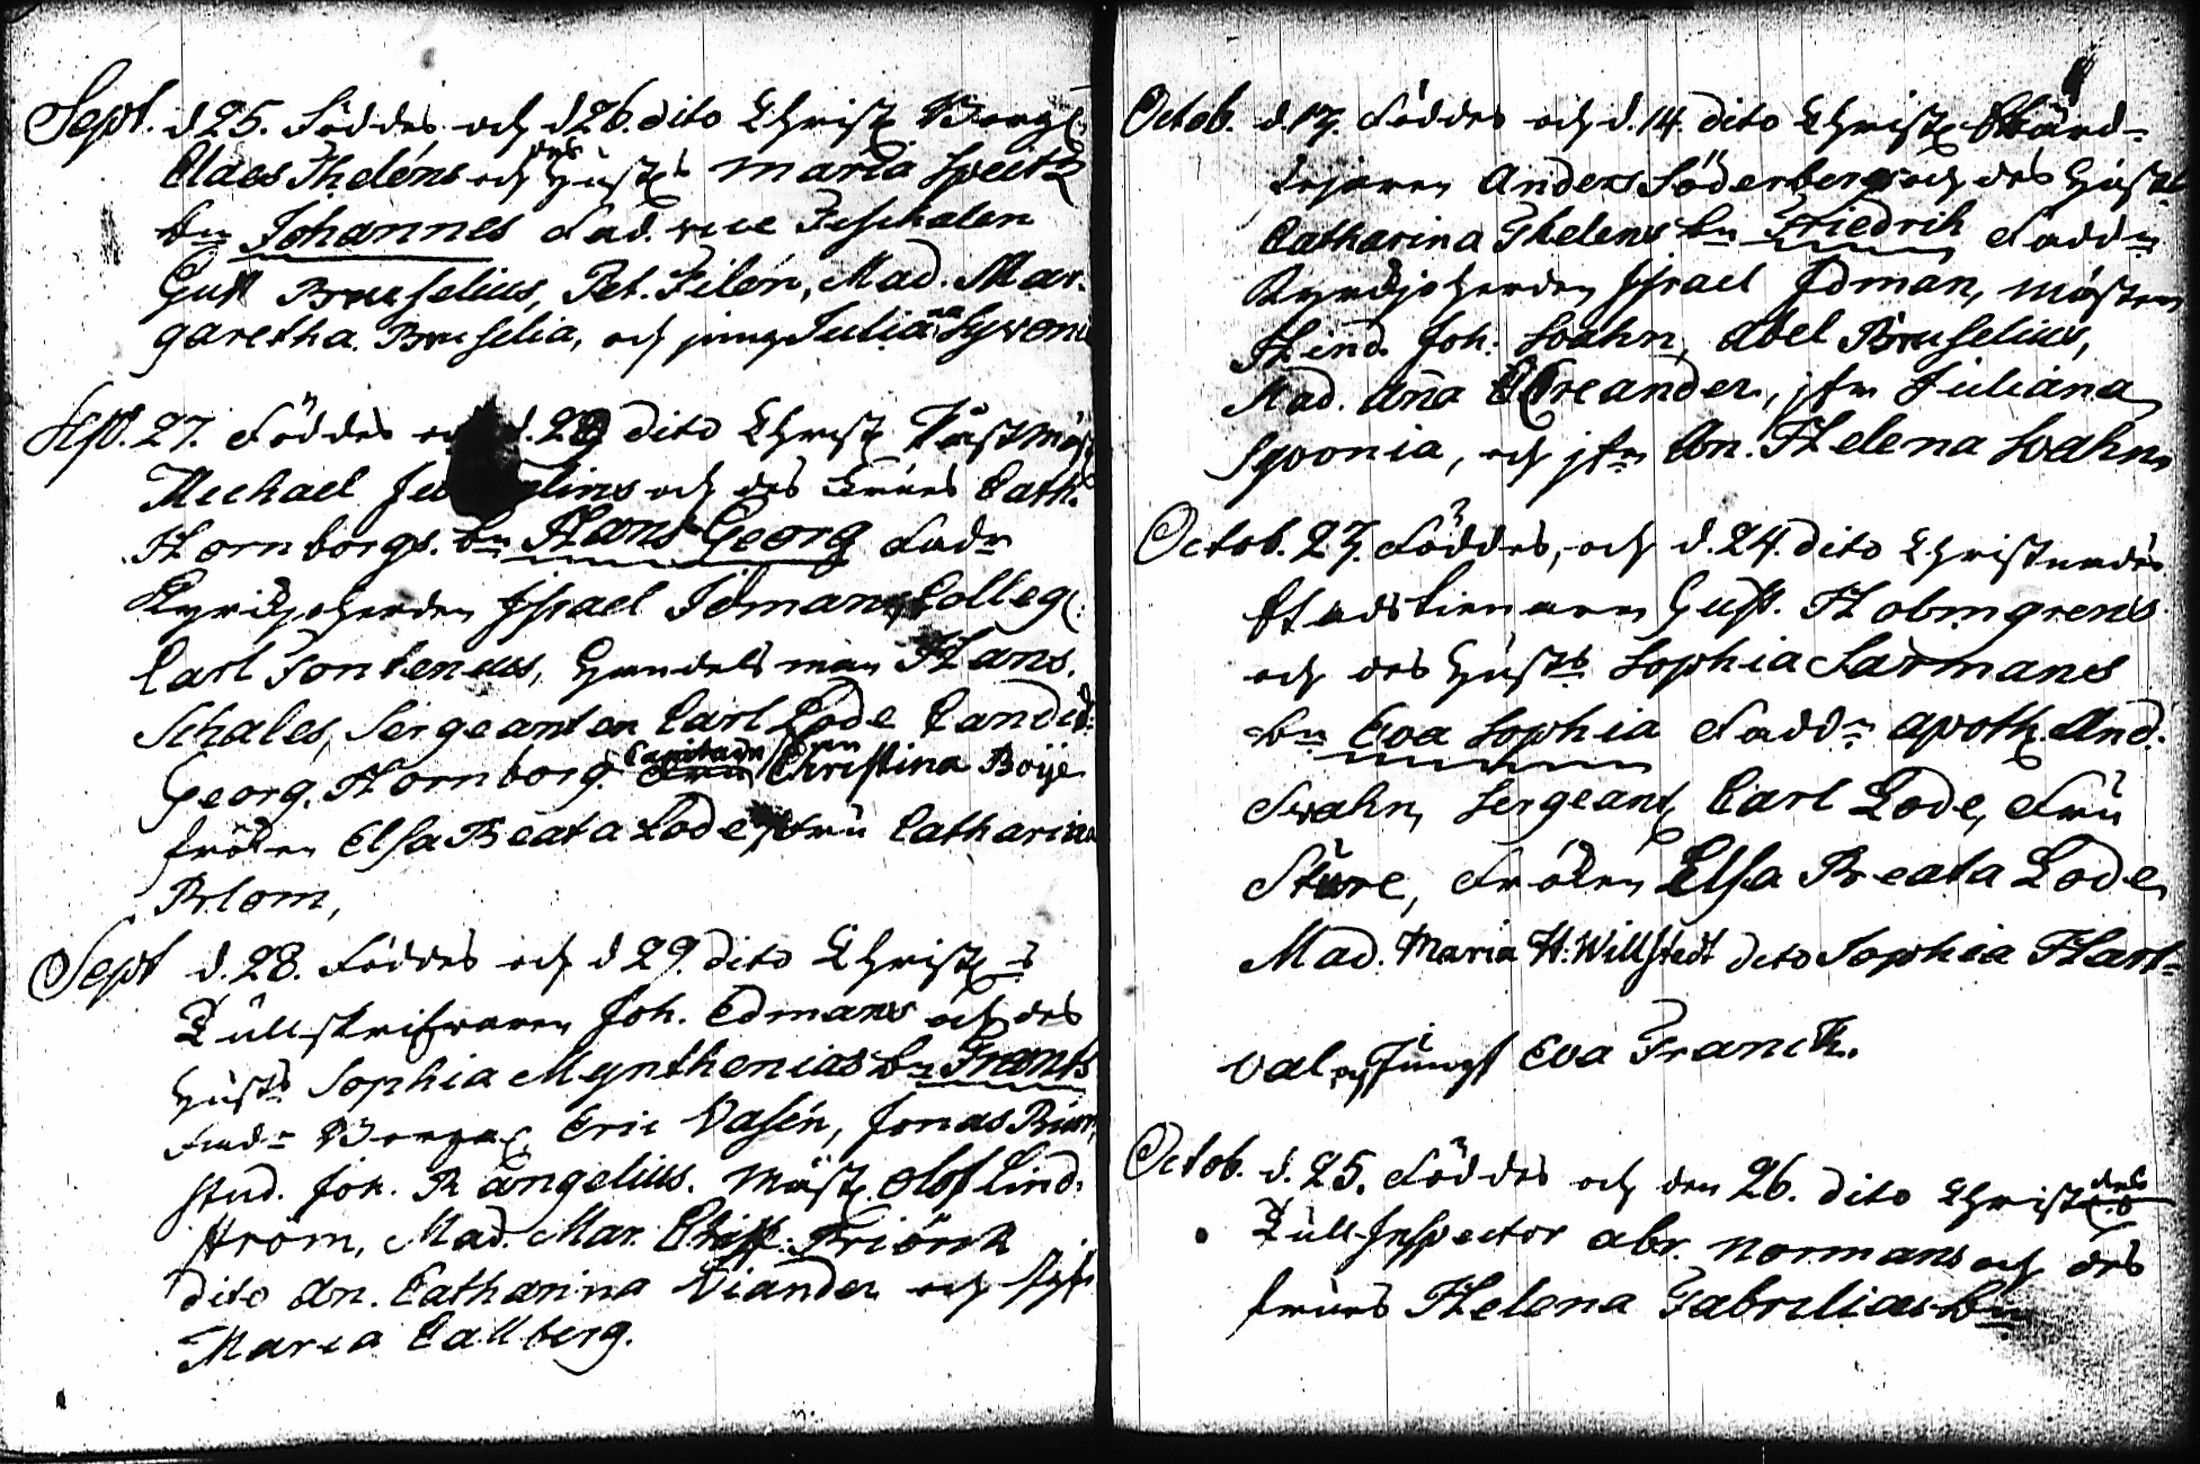 Sept. d 25. Föddes och d 26. dito Christ. Borg:
Claes Thelens och des Hust: Maria Speitz
bn Johannes Fad.
Gust Bruselius, Pet. Filen, Mad. Mar-
garetha Bruselia, och jungf Juliana Syvoni
Sept. 27. Föddes och d. 29 dito Christ. Postmäst
Michael lius och des Frues Cath.
Hornborgs. bn Hans Georg Fadr
Kyrckjoherden Israel Idman, Colleg:
Carl Fontenius, Handelsman Hans
Schales, Sergeanten Carl Lode Candid:
Georg. Hornborg. Capitains frun Christina Böije
fröken Elsa Beata Lode, frü Catharina
Blom,
Sept d. 28. Föddes och d 29. dito Christ:s
Tullskrifwaren Joh. Edmans och des
Hust Sophia Mynthenias bn Frants
Fadr Borgar. Eric Vasén, Jonas
stud. Joh. Rangelius. Mäst. Olof Lind-
ström, Mad. Mar. Briörk
dito An. Catharina Viander och Jgfr
Maria Callberg.
Octob. d. 13. Föddes och d. 14. dito Christ. Swärd-
fejaren Anders Söderbergs och des Hust
Catharina Thelens bn Friedrik Faddr
Kyrckjoherden Israel Idman, Mästern
Hind. Joh. Swahn, Abel Bruselius,
Mad. Anna Areander, jfr Juliana
Syvonia, och jfr An. Helena Swahn
Octob. 23. Föddes, och d. 24. dito Christnades
Stadstienaren Gust. Holmgrens
och des Hust Sophia Sarmans
bn Eva Sophia Faddr apoth. And.
Swahn, Sergeant Carl Lode, Frü
Stüre, Fröken Elsa Beata Lode,
Mad. Maria H: Willstedt dito Sophia Hart-
val, och Jungf Eva Franck.
Octob. d. 25. Föddes och den 26. dito Christ:des
Tull-Inspector Abr. Normans och des
frües Helena Fabrilias bn